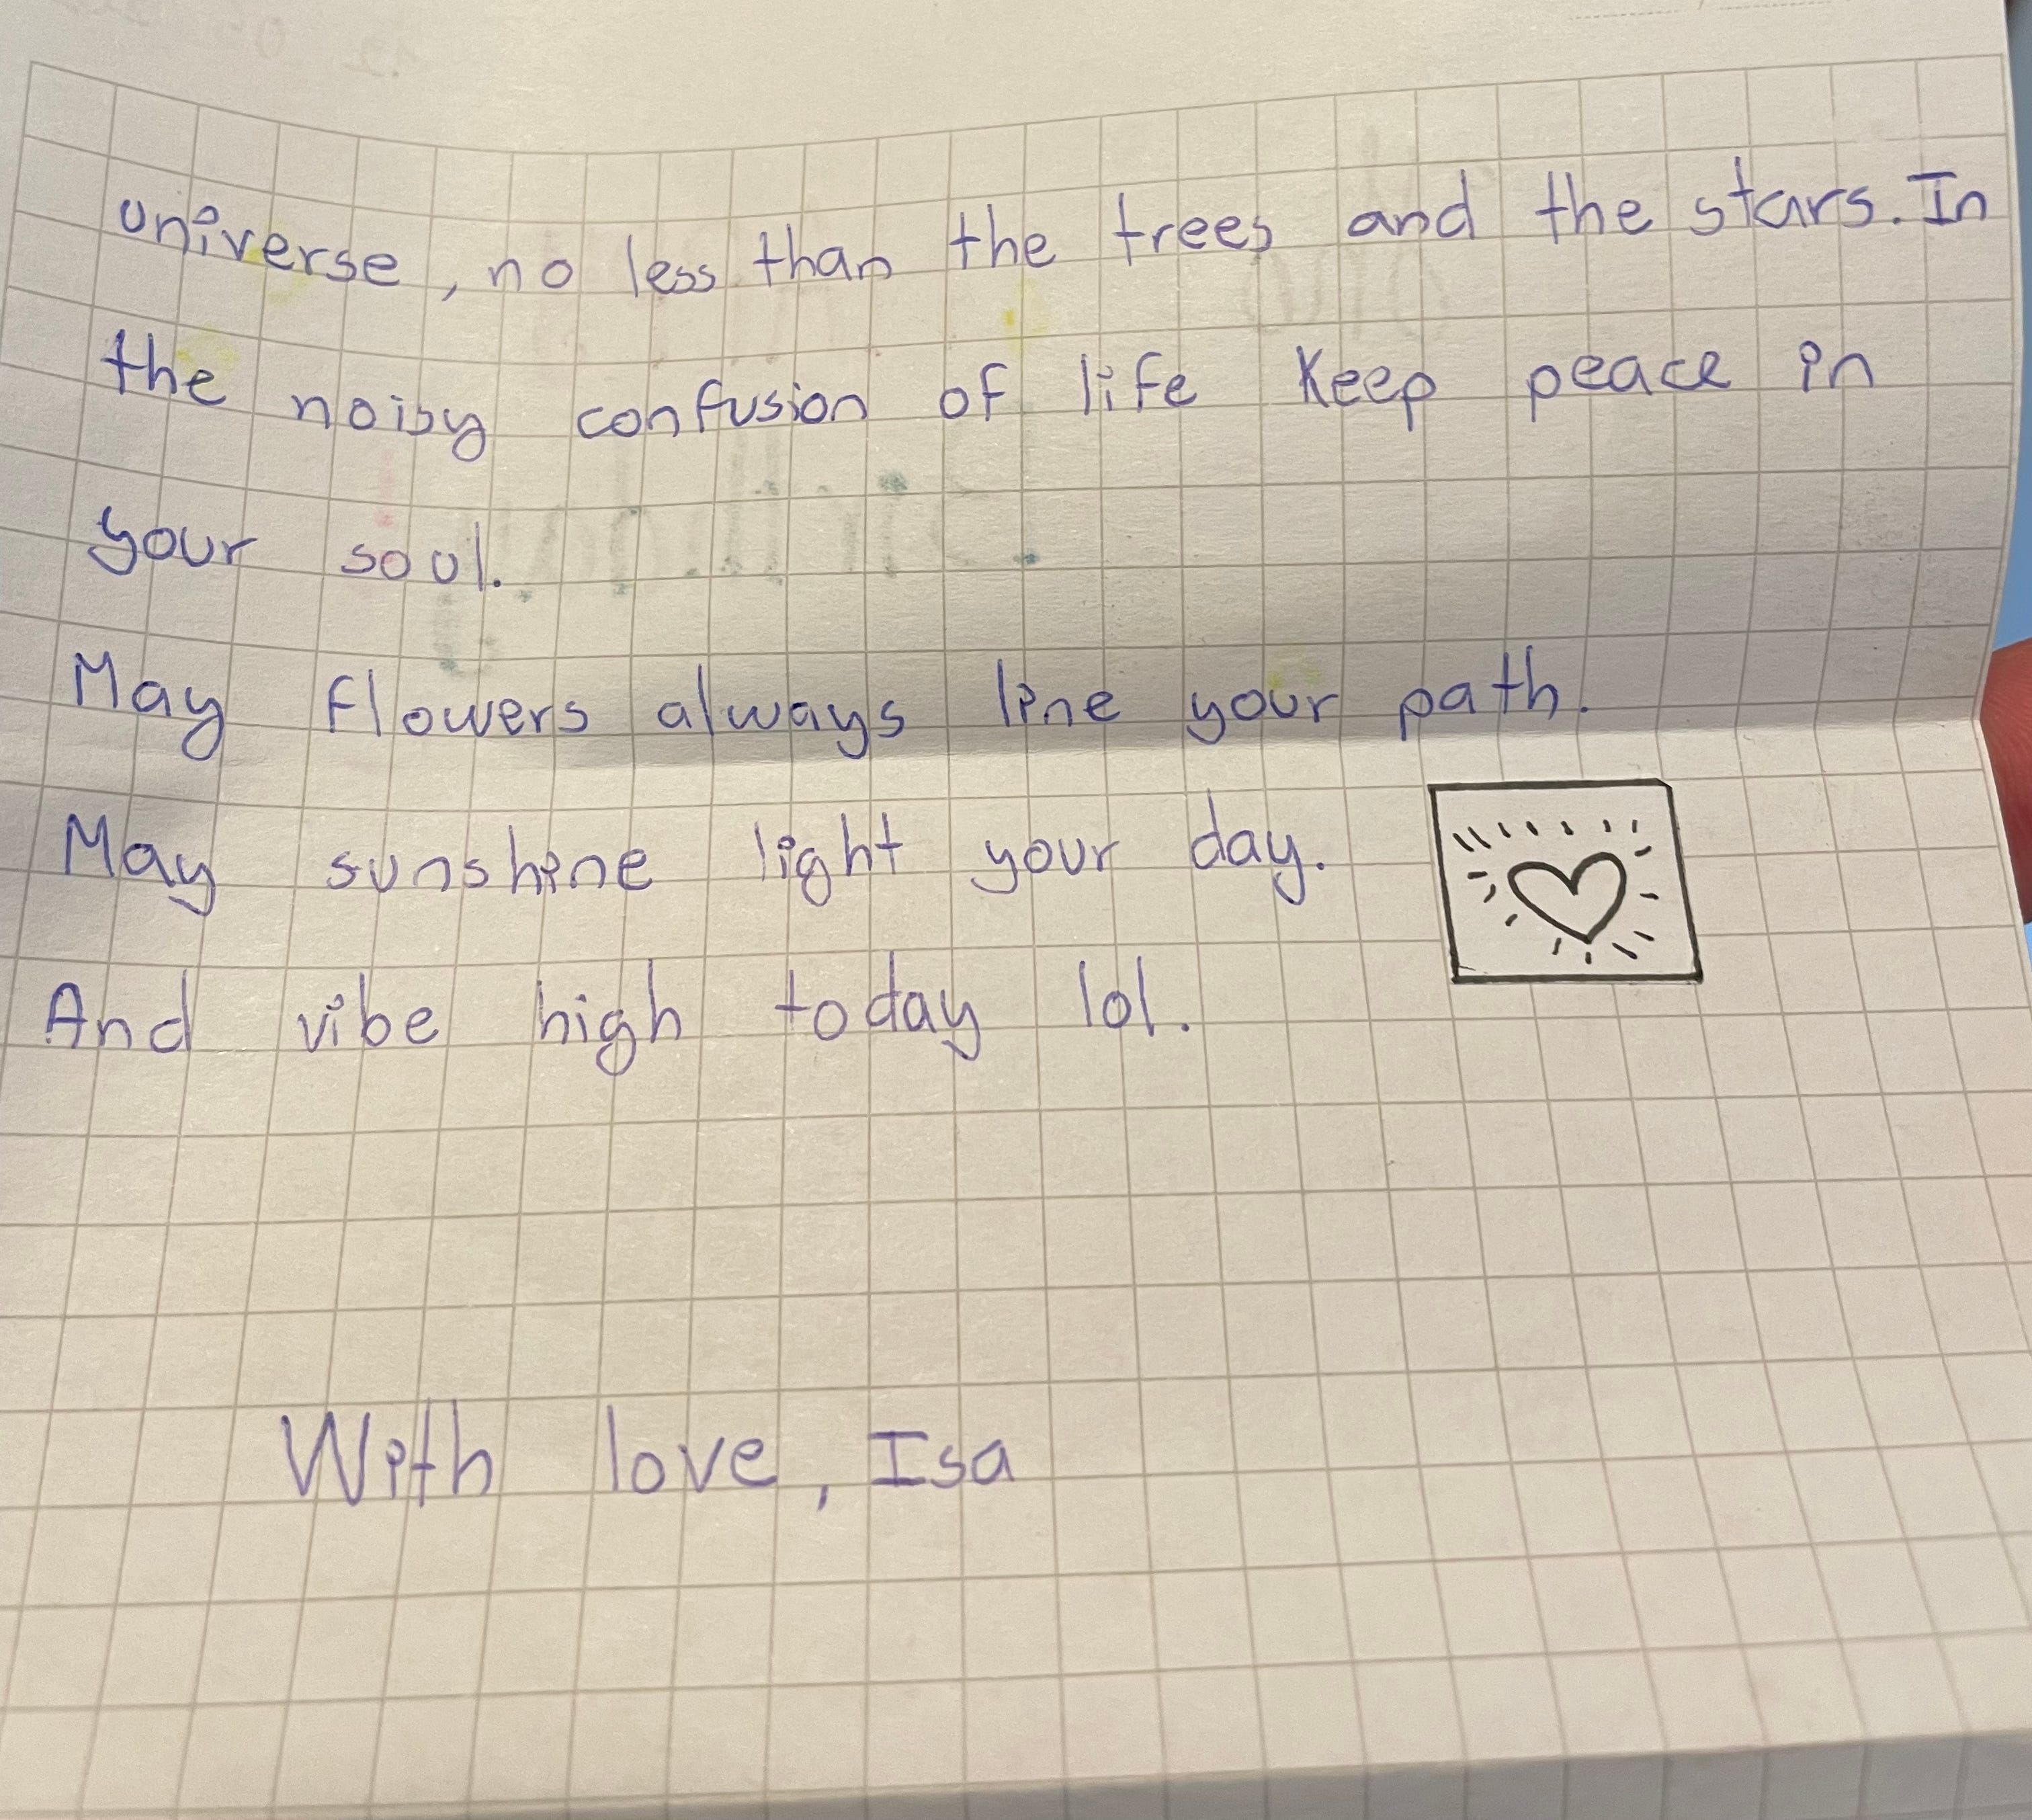 universe, no less than the trees and the stars. In
the noisy confusion of life keep peace in
your soul.
May flowers always line your path.
May sunshine light your day.
And vibe high today lol.
With love, Isa